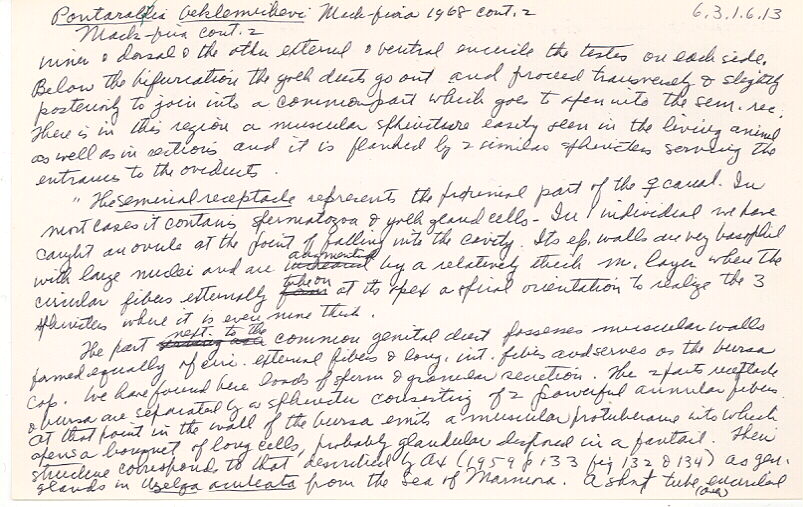 Pontaralia beklemichevi Mack-fira 1968 cont. 2
6.3.1.6.13
Mack-fira cont. 2
inner & dorsal & the other external & ventral encircle the testes on each side.
Below the bifurcation the yolk ducts go out and proceed transversely & slightly
posteriorly to join into a common part which goes to open into the sem. rec.
There is in this region a muscular sphincter easily seen in the living animal
as well as in sections and it is flanked by 2 similar sphincters serving the
entrances to the oviducts.
"The seminal receptacle represents the proximal part of the ♀ canal. In
most cases it contains spermatozoa & yolk gland cells - In 1 individual we have
caught an ovule at the point of falling into the cavity. Its ep. walls are very basophil
with large nuclei and are augmented by a relatively thick m. layer where the
circular fibers externally take on at its apex a spiral orientation to realize the 3
sphincters where it is even more thick.
The part next to the common genital duct possesses muscular walls
formed equally of circ. external fibers & long. int. fibers and serves as the bursa
cop. We have found here loads of sperm & granular secretion. The 2 parts receptacle
& bursa are separated by a sphincter consisting of 2 powerful annular fibers.
At that point in the wall of the bursa emits a muscular protuberance into which
opens a bouquet of long cells, probably glandular disposed in a fantail. Their
structure corresponds to that described by Ax (1959 p 133 fig 132 & 134) as gen.
glands in Uzelga aculeata from the Sea of Marmora. A short tube, encircled